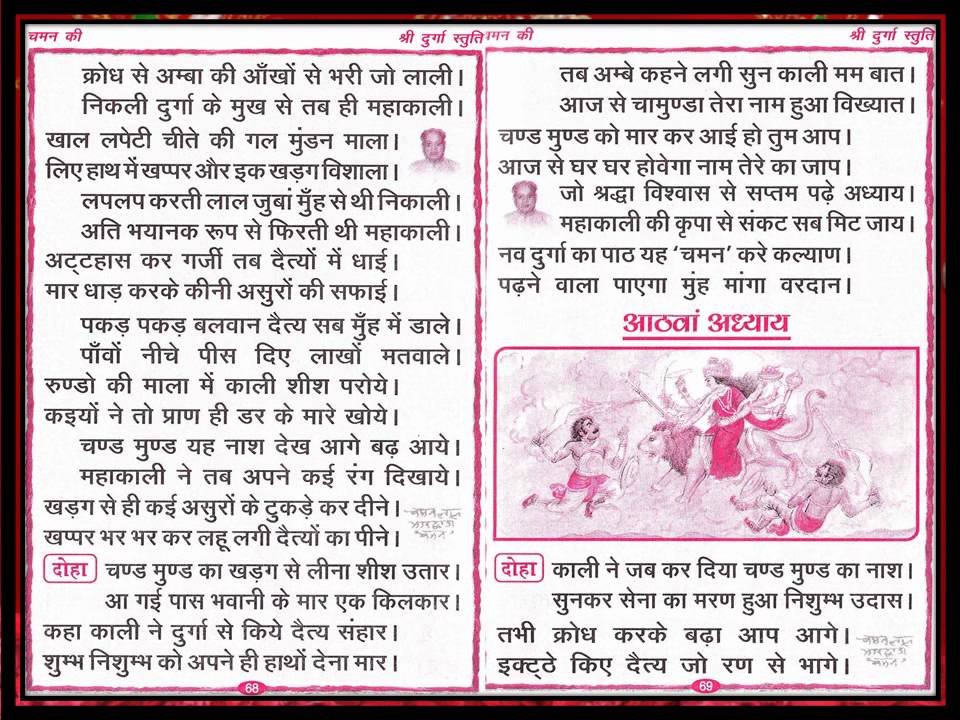 चमन की
श्री दुर्गा स्तुति
क्रोध से अम्बा की आँखों से भरी जो लाली।
निकली दुर्गा के मुख से तब ही महाकाली।
खाल लपेटी चीते की गल मुंडन माला।
लिए हाथ में खप्पर और इक खड़ग विशाला।
लपलप करती लाल जुबां मुँह से थी निकाली।
अति भयानक रूप से फिरती थी महाकाली।
अट्टहास कर गर्जी तब दैत्यों में धाई।
मार धाड़ करके कीनी असुरों की सफाई।
पकड़ पकड़ बलवान दैत्य सब मुँह में डाले।
पाँवों नीचे पीस दिए लाखों मतवाले।
रुण्डो की माला में काली शीश परोये।
कइयों ने तो प्राण ही डर के मारे खोये।
चण्ड मुण्ड यह नाश देख आगे बढ़ आये।
महाकाली ने तब अपने कई रंग दिखाये।
खड़ग से ही कई असुरों के टुकड़े कर दीने।
खप्पर भर भर कर लहू लगी दैत्यों का पीने।
दोहा चण्ड मुण्ड का खड़ग से लीना शीश उतार।
आ गई पास भवानी के मार एक किलकार।
कहा काली ने दुर्गा से किये दैत्य संहार।
शुम्भ निशुम्भ को अपने ही हाथों देना मार।
68
चमन की
श्री दुर्गा स्तुति
तब अम्बे कहने लगी सुन काली मम बात।
आज से चामुण्डा तेरा नाम हुआ विख्यात।
चण्ड मुण्ड को मार कर आई हो तुम आप।
आज से घर घर होवेगा नाम तेरे का जाप।
जो श्रद्धा विश्वास से सप्तम पढ़े अध्याय।
महाकाली की कृपा से संकट सब मिट जाय।
नव दुर्गा का पाठ यह ‘चमन’ करे कल्याण।
पढ़ने वाला पाएगा मुंह मांगा वरदान।
आठवां अध्याय
दोहा काली ने जब कर दिया चण्ड मुण्ड का नाश।
सुनकर सेना का मरण हुआ निशुम्भ उदास।
तभी क्रोध करके बढ़ा आप आगे।
इक्ट्ठे किए दैत्य जो रण से भागे।
69